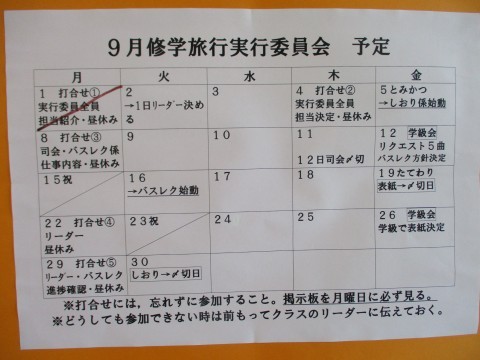 9月修学旅行実行委員会 予定
月 火 水 木 金
1 打合せ①
実行委員全員
担当紹介・昼休み
2
→1日リーダー決め
る
3
4 打合せ②
実行委員全員
担当決定・昼休み
5とみかつ
→しおり係始動
8 打合せ③
司会・バスレク係
仕事内容・昼休み
9
10
11
12日司会〆切
12 学級会
リクエスト5曲
バスレク方針決定
15祝
16
→バスレク始動
17
18
19たてわり
表紙→〆切日
22 打合せ④
リーダー
昼休み
23祝
24
25
26 学級会
学級で表紙決定
29 打合せ⑤
リーダー・バスレク
進捗確認・昼休み
30
しおり→〆切日
※打合せには，忘れずに参加すること。掲示板を月曜日に必ず見る。
※どうしても参加できない時は前もってクラスのリーダーに伝えておく。